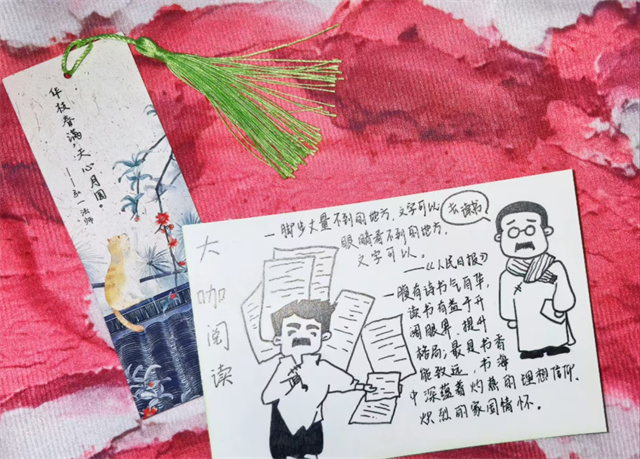 华枝春满，天心月圆。
——弘一法师
大咖阅读
一脚步丈量不到的地方，文字可以，
眼睛看不到的地方，
文字可以。
——《人民日报》
去读书
一腹有诗书气自华，
读书有益于开
阔眼界、提升
格局；最是书香
能致远，书海
中深蕴着灼热的理想信仰、
炽烈的家国情怀。